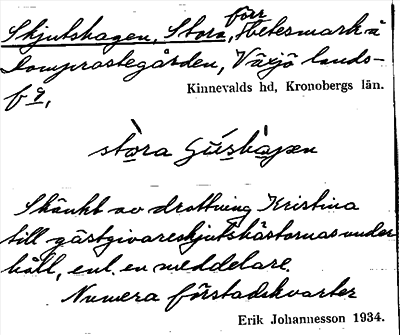 förr
Skjutshagen, Stora, betesmark å
Domprostegården, Växjö lands-
f g,
Kinnevalds hd, Kronobergs län.
stòra
Skänkt av drottning Kristina
till gästgivareskjutshästornas under
håll, enl. en meddelare.
Numera förstadskvarter
Erik Johannesson 1934.